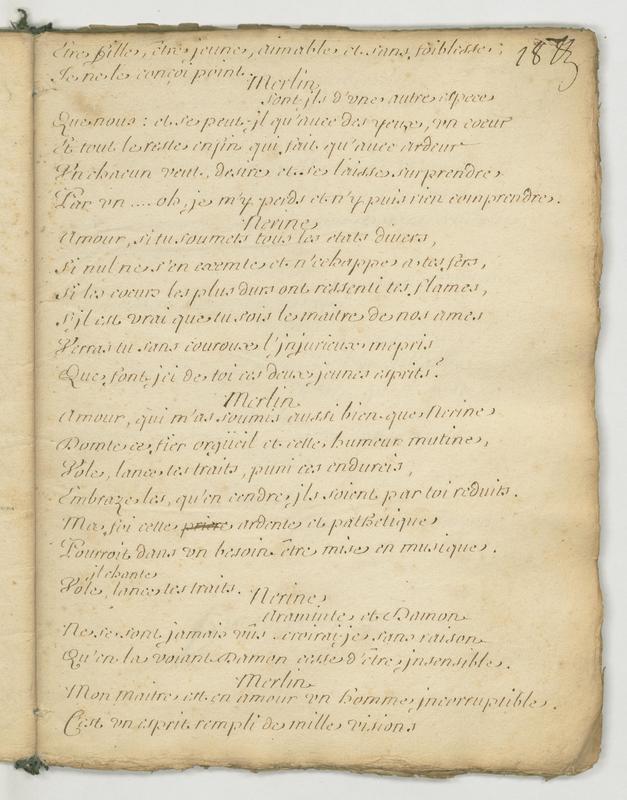 Etre fille, être jeune, aimable et sans foiblesse;
Je ne le conçoi point.
Merlin
sont jls d'vne autre espece
Que nous: et se peut-jl qu'auec des yeux, vn coeur
Et tout le reste enfin qui fait qu'auec ardeur
Vn chacun veut, desire et se laisse surprendre
Par vn .... oh, je m'y perds et n'y puis rien comprendre.
Nerine
Amour, si tu soumets tous les etats divers,
Si nul ne s'en exemte et n'echappe a tes fers,
Si les coeurs les plus durs ont ressenti tes flames,
S'jl est vrai que tu sois le maitre de nos ames
Verras tu sans couroux l'jnjurieux mepris
Que font jci de toi ces deux jeunes esprits?
Merlin
Amour, qui m'as soumis aussi bien que Nerine
Domte ce fier orgüeil et cette humeur mutine,
Vole, lance tes traits, puni ces endurcis,
Embraze les, qu'en cendre jls soient par toi reduits.
Ma foi cette priere ardente et pathetique
Pourroit dans vn besoin être mise en musique.
jl chante
Vole, lance tes traits.
Nerine
Araminte et Damon
Ne se sont jamais vûs. croirai-je sans raison
Qu'en la voiant Damon cesse d'être insensible.
Merlin
Mon maitre est en amour vn homme jncorruptible.
C'est vn esprit rempli de mille visions